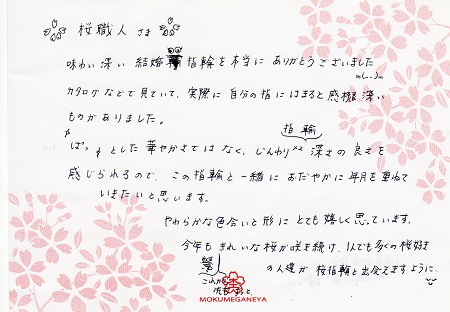 桜職人さま
味わい深い 結婚指輪を本当に ありがとうございました
m(..)m
カタログなどで見ていて、実際に自分の指にはまると感慨深い
ものがありました。
指輪
"ぱっ"とした華やかさではなく、じんわり 深さの良さを
感じられるので、この指輪と一緒におだやかに年月を重ねて
いきたいと思います。
やわらかな色合いと形にとても嬉しく思っています。
今年もきれいな桜が咲き続け、1人でも多くの桜好き
の人達が 桜指輪と出会えますように
これからも
MOKUMEGANEYA